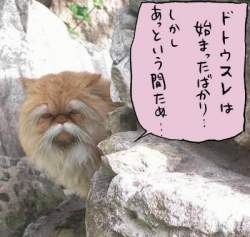 ドトウスレは
始まったばかり…
しかし
あっという間だぬ…